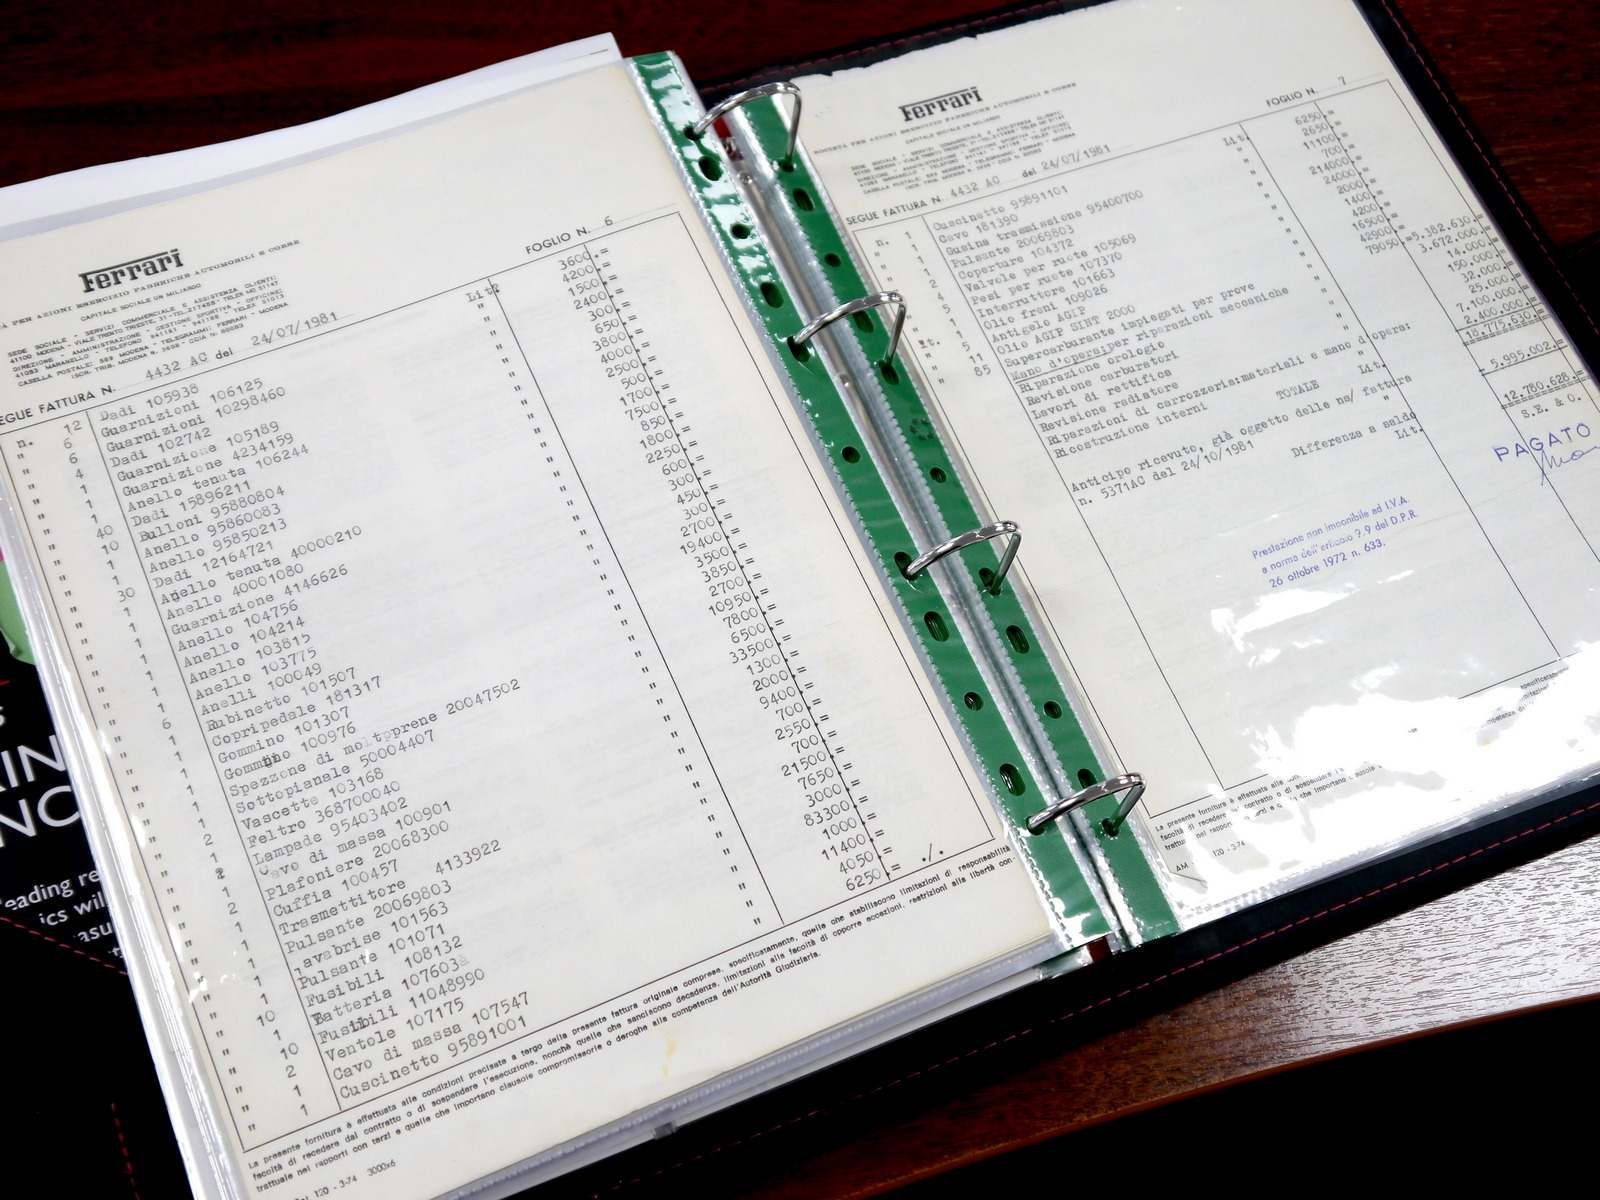 Ferrari
CAPITALE SOCIALE UN MILIARDO
SEGUE FATTURA N. 4432 AC del 24/07/1981
FOGLIO N. 6
n. 12 Dadi 105938 Lit. 3600.=
" 6 Guarnizioni 106125 " 4200.=
" 6 Guarnizioni 10298460 " 1500.=
" 4 Dadi 102742 " 2400.=
" 1 Guarnizione 105189 " 300.=
" 1 Guarnizione 4234159 " 650.=
" 1 Anello tenuta 106244 " 3800.=
" 40 Dadi 15896211 " 4000.=
" 10 Bulloni 95880804 " 2500.=
" 1 Anello 95860083 " 500.=
" 1 Anello 95850213 " 1700.=
" 30 Dadi 12164721 " 7500.=
" 1 Anello tenuta 40000210 " 850.=
" 1 Anello 40001080 " 1800.=
" 1 Guarnizione 4146626 " 2250.=
" 1 Anello 104756 " 600.=
" 1 Anello 104214 " 300.=
" 1 Anello 103815 " 450.=
" 1 Anello 103775 " 300.=
" 6 Anelli 100049 " 2700.=
" 1 Rubinetto 101507 " 19400.=
" 1 Copripedale 181317 " 3500.=
" 1 Gommino 101307 " 3850.=
" 1 Gommino 100976 " 2700.=
" 1 Spezzone di moltoprene 20047502 " 10950.=
" 1 Sottopianale 50004407 " 7800.=
" 2 Vaschette 103168 " 6500.=
" 1 Feltro 368700040 " 33500.=
" 2 Lampade 95403402 " 1300.=
" 1 Cavo di massa 100901 " 2000.=
" 2 Plafoniere 20068300 " 9400.=
" 1 Cuffia 100457 " 700.=
" 1 Trasmettitore 4133922 " 2550.=
" 1 Pulsante 20069803 " 700.=
" 1 Lavabrise 101563 " 21500.=
" 1 Pulsante 101071 " 7650.=
" 10 Fusibili 108132 " 3000.=
" 1 Batteria 107603 " 83300.=
" 10 Fusibili 11048990 " 1000.=
" 2 Ventole 107175 " 11400.=
" 1 Cavo di massa 107547 " 4050.=
" 1 Cuscinetto 95891001 " 6250.= ./.
La presente fornitura è effettuata alle condizioni precisate a tergo della presente fattura originale comprese, specificatamente, quelle che stabiliscono limitazioni di responsabilità,
facoltà di recedere dal contratto o di sospendere l'esecuzione, nonchè quelle che sanciscono decadenze, limitazioni alla facoltà di opporre eccezioni, restrizioni alla libertà con-
trattuale nei rapporti con terzi e quelle che importano clausole compromissorie o deroghe alla competenza dell'Autorità Giudiziaria.
120 - 3-74 3000x6
Ferrari
SOCIETÀ PER AZIONI ESERCIZIO FABBRICHE AUTOMOBILI E CORSE
CAPITALE SOCIALE UN MILIARDO
SEGUE FATTURA N. 4432 AC del 24/07/1981
FOGLIO N. 7
n. 1 Cuscinetto 95891101 Lit. 6250.=
Cavo 181390 " 2650.=
Guaina trasmissione 95400700 " 11100.=
Pulsante 20069803 " 700.=
Coperture 104372 " 214000.=
Valvole per ruote 105069 " 24000.=
Pesi per ruote 107370 " 2000.=
Interruttore 101663 " 1400.=
Olio freni 109026 " 4200.=
Antigelo AGIP " 16500.=
Olio AGIP SINT 2000 " 42900.=
85 Supercarburante impiegati per prove " 79050.=5.382.630.=
Mano d'opera:per riparazioni meccaniche 3.672.000.=
Riparazione orologio 14.000.=
Revisione carburatori 150.000.=
Lavori di rettifica 32.000.=
Revisione radiatore 25.000.=
Riparazioni di carrozzeria:materiali e mano d'opera: 7.100.000.=
Ricostruzione interni 2.400.000.=
TOTALE Lit. 18.775.630.=
Anticipo ricevuto, già oggetto delle ns/ fattura
n. 5371AC del 24/10/1981 " 5.995.002.=
Differenza a saldo Lit. 12.780.628.=
S.E. & O.
PAGATO
Prestazione non imponibile ad I.V.A.
a norma dell'articolo 9.9 del D.P.R.
26 ottobre 1972 n. 633.
La presente fornitura è effettuata alla
facoltà di recedere dal contratto o di sospendere
trattuale nei rapporti
120 - 3-74